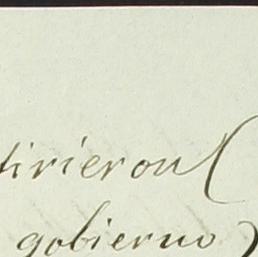 tirieron (
gobierno )